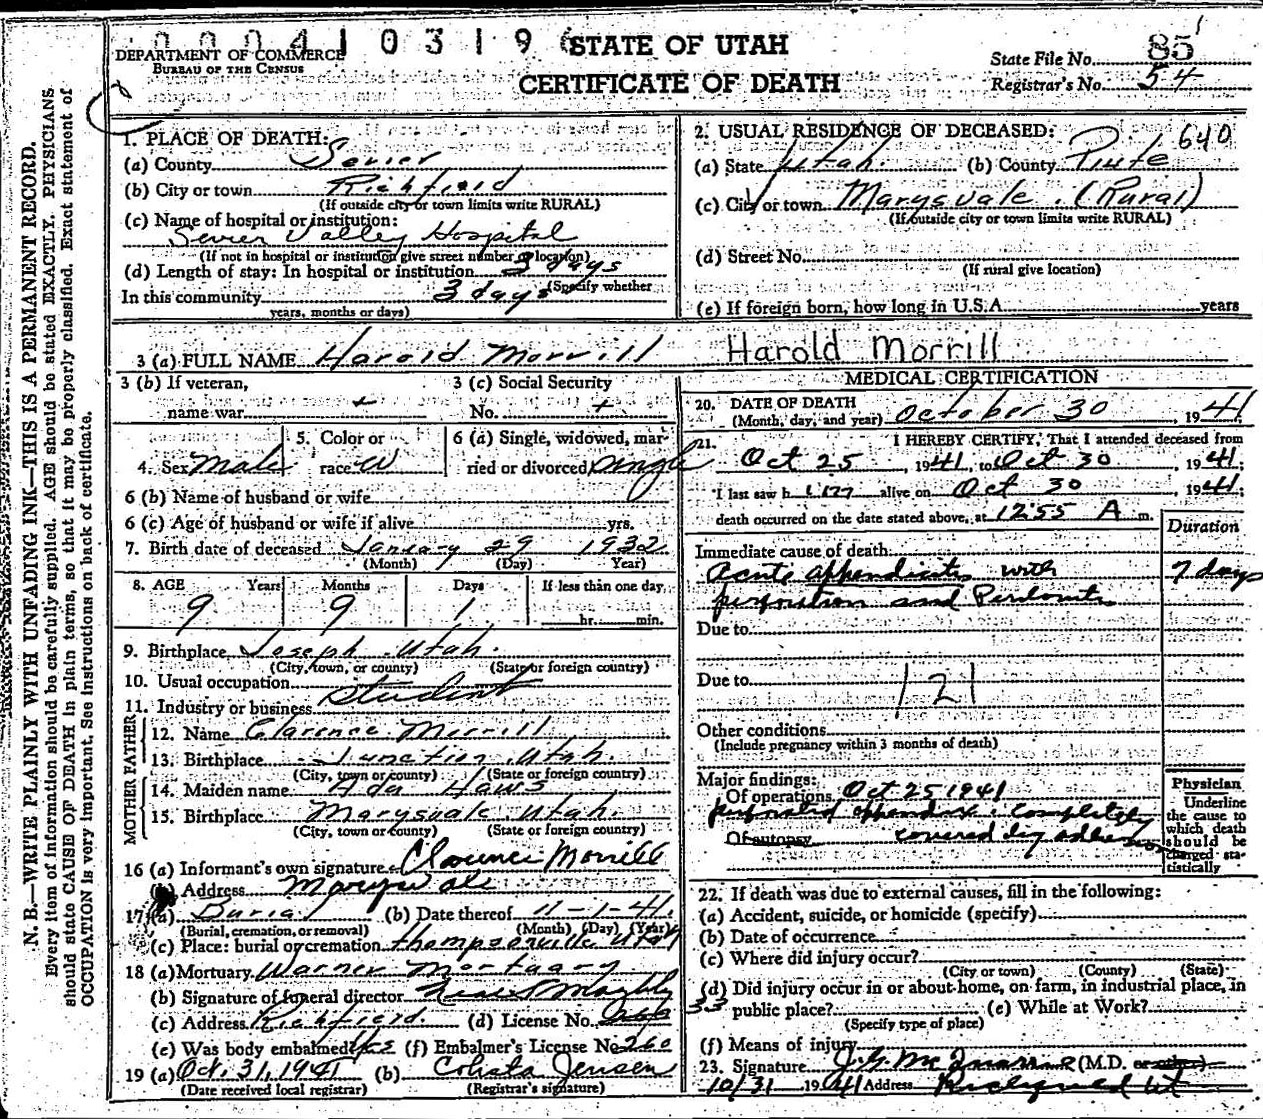 N. B.—WRITE PLAINLY WITH UNFADING INK—THIS IS A PERMANENT RECORD.
Every item of information should be carefully supplied. AGE should be stated EXACTLY. PHYSICIANS
should state CAUSE OF DEATH in plain terms, so that it may be properly classified. Exact statement of
OCCUPATION is very important. See instructions on back of certificate.
DEPARTMENT OF COMMERCE
BUREAU OF THE CENSUS
STATE OF UTAH
CERTIFICATE OF DEATH
State File No. 85
Registrar's No. 54
1. PLACE OF DEATH:
(a) County Sevier
(b) City or town Richfield
(If outside city or town limits write RURAL)
(c) Name of hospital or institution:
Sevier Valley Hospital
(If not in hospital or institution give street number or location)
(d) Length of stay: In hospital or institution 3 days
(Specify whether
In this community 3 days
years, months or days)
2. USUAL RESIDENCE OF DECEASED: 640
(a) State Utah (b) County Piute
(c) City or town Marysvale (Rural)
(If outside city or town limits write RURAL)
(d) Street No.
(If rural give location)
(e) If foreign born, how long in U.S.A. years
3 (a) FULL NAME Harold Morrill Harold Morrill
3 (b) If veteran,
name war
3 (c) Social Security
No.
4. Sex Male
5. Color or
race W
6 (a) Single, widowed, mar-
ried or divorced single
6 (b) Name of husband or wife
6 (c) Age of husband or wife if alive yrs.
7. Birth date of deceased January 29 1932
(Month) (Day) Year)
8. AGE Years Months Days If less than one day
9 9 1 hr. min.
9. Birthplace Joseph Utah.
(City, town, or county) (State or foreign country)
10. Usual occupation Student
11. Industry or business
FATHER
12. Name Clarence Morrill
13. Birthplace Junction Utah.
(City, town or county) (State or foreign country)
MOTHER
14. Maiden name Ada Haws
15. Birthplace Marysvale Utah.
(City, town or county) (State or foreign country)
16 (a) Informant's own signature Clarence Morrill
(b) Address Marysvale
17 (a) Burial (b) Date thereof 11-1-41
(Burial, cremation, or removal) (Month) (Day) (Year)
(c) Place: burial or cremation Thompsonville Utah
18 (a) Mortuary Warner Mortuary
(b) Signature of funeral director
(c) Address Richfield. (d) License No.
(e) Was body embalmed? yes (f) Embalmer's License No 260
19 (a) Oct. 31, 1941 (b) Jensen
(Date received local registrar) (Registrar's signature)
MEDICAL CERTIFICATION
20. DATE OF DEATH
(Month, day, and year) October 30, 1941
21. I HEREBY CERTIFY, That I attended deceased from
Oct 25, 1941, to Oct 30, 1941;
I last saw him alive on Oct 30, 1941;
death occurred on the date stated above, at 12:55 A m.
Duration
Immediate cause of death:
Acute appendicitis with 7 days
perforation and Peritonitis
Due to
Due to 121
Other conditions
(Include pregnancy within 3 months of death)
Major findings:
Of operations Oct 25 1941
perforated appendix completely
Of autopsy covered by adhesions
Physician
Underline
the cause to
which death
should be
charged sta-
tistically
22. If death was due to external causes, fill in the following:
(a) Accident, suicide, or homicide (specify)
(b) Date of occurrence
(c) Where did injury occur?
(City or town) (County) (State)
(d) Did injury occur in or about home, on farm, in industrial place, in
33 public place? (e) While at Work?
(Specify type of place)
(f) Means of injury
23. Signature (M.D. or other)
10/31 1941 Address Richfield Ut